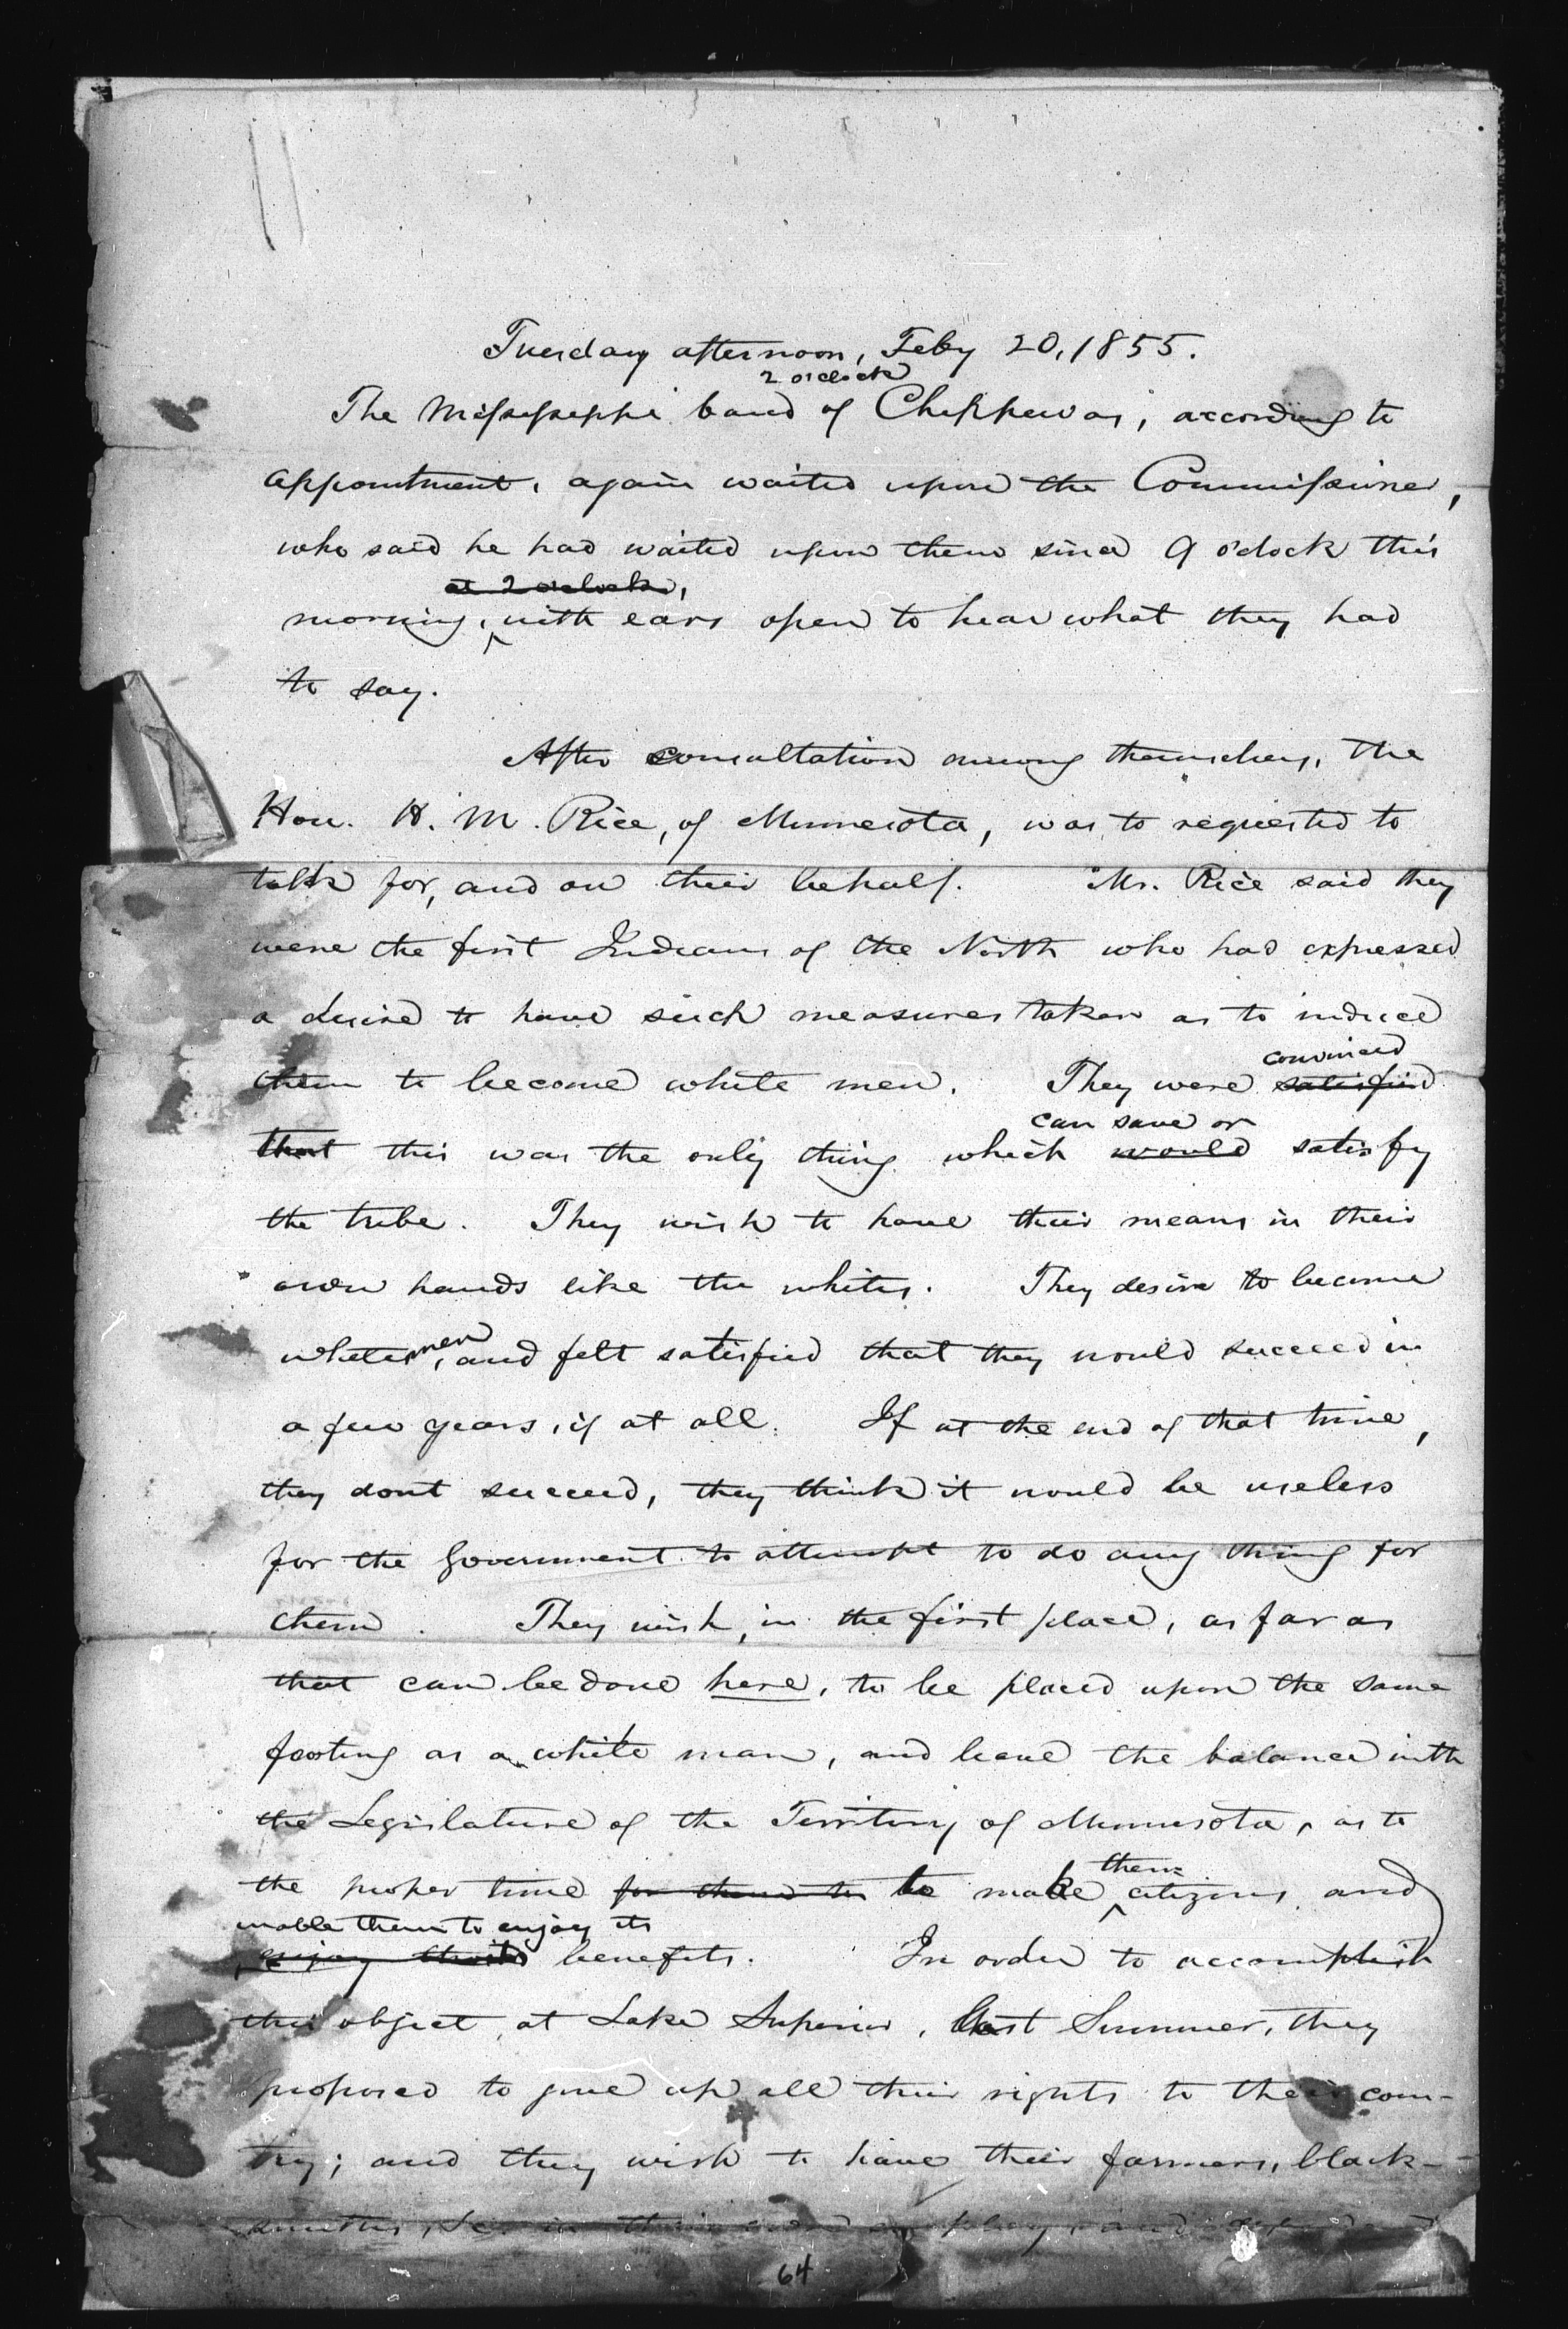 Tuesday afternoon, Feby 20, 1855.
2 o'clock
The Mississippi band of Chippewas, according to
appointment, again waited upon the Commissioner,
who said he had waited upon them since 9 o'clock this
at 2 o'clock,
morning, with ears open to hear what they had
to say.
After consultation among themselves, the
Hon. H. M. Rice, of Minnesota, was to requested to
talk for, and on their behalf. Mr. Rice said they
were the first Indians of the North who had expressed
a desire to have such measures taken as to induce
convinced
them to become white men. They were satisfied
can save or
that this was the only thing which would satisfy
the tribe. They wish to have their means in their
own hands like the whites. They desire to become
men
white, and felt satisfied that they would succeed in
a few years, if at all. If at the end of that time,
they dont succeed, they think it would be useless
for the Government to attempt to do any thing for
them. They wish, in the first place, as far as
that can be done here, to be placed upon the same
footing as a white man, and leave the balance with
the Legislature of the Territory of Minnesota, as to
them
the proper time for them to to make citizens and
enable them to enjoy its
enjoy their benefits. In order to accomplish
this object, at Lake Superior, last Summer, they
proposed to give up all their rights to their coun-
try; and they wish to have their farmers, black-
smiths, &c. in their own employ, and
64